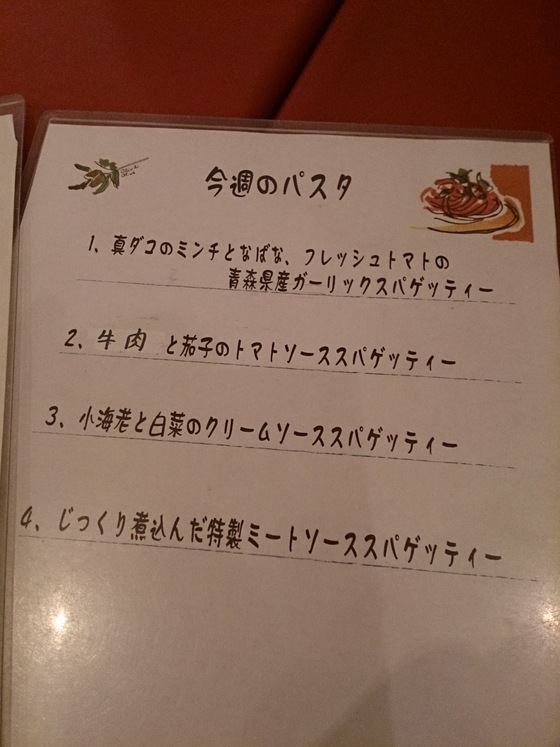 今週のパスタ
1、真ダコのミンチとなばな、フレッシュトマトの
青森県産ガーリックスパゲッティー
2、牛肉 と茄子のトマトソーススパゲッティー
3、小海老と白菜のクリームソーススパゲッティー
4、じっくり煮込んだ特製ミートソーススパゲッティー